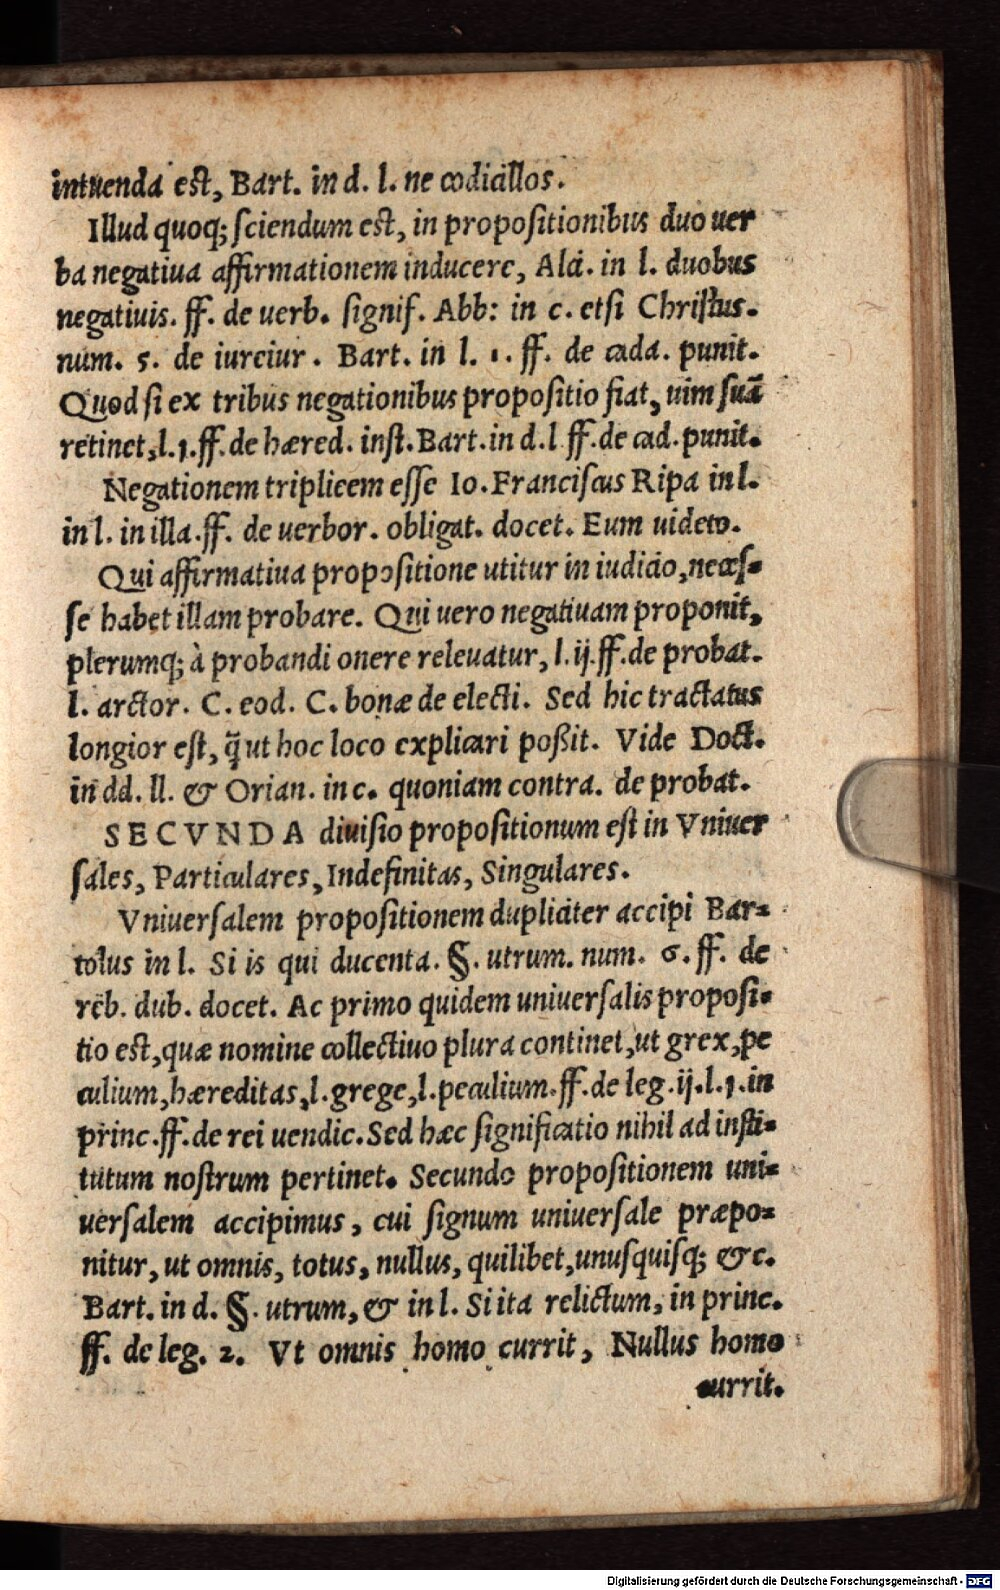 intuenda est, Bart. in d. l. ne codicillos.
Illud quoq; sciendum est, in propositionibus duo uer
ba negatiua affirmationem inducere, Alci. in l. duobus
negatiuis. ff. de uerb. signif. Abb: in c. etsi Christus.
num. 5. de iureiur. Bart. in l. 1. ff. de cada. punit.
Quod si ex tribus negationibus propositio fiat, uim suā
retinet, l. 1. ff. de hæred. inst. Bart. in d. l ff. de cad. punit.
Negationem triplicem esse Io. Franciscus Ripa in l.
in l. in illa. ff. de uerbor. obligat. docet. Eum uideto.
Qui affirmatiua propositione utitur in iudicio, neces-
se habet illam probare. Qui uero negatiuam proponit,
plerumq; à probandi onere releuatur, l. ij. ff. de probat.
l. arctor. C. eod. C. bonæ de electi. Sed hic tractatus
longior est, q̃ ut hoc loco explicari poßit. Vide Doct.
in dd. ll. & Orian. in c. quoniam contra. de probat.
SECVNDA diuisio propositionum est in Vniuer
sales, Particulares, Indefinitas, Singulares.
Vniuersalem propositionem dupliciter accipi Bar-
tolus in l. Si is qui ducenta. §. utrum. num. 6. ff. de
reb. dub. docet. Ac primo quidem uniuersalis proposi-
tio est, quæ nomine collectiuo plura continet, ut grex, pe
culium, hæreditas, l. grege, l. peculium. ff. de leg. ij. l. 1. in
princ. ff. de rei uendic. Sed hæc significatio nihil ad insti-
tutum nostrum pertinet. Secundo propositionem uni-
uersalem accipimus, cui signum uniuersale præpo-
nitur, ut omnis, totus, nullus, quilibet, unusquisq; &c.
Bart. in d. §. utrum, & in l. Si ita relictum, in princ.
ff. de leg. 2. Vt omnis homo currit, Nullus homo
currit.
Digitalisierung gefördert durch die Deutsche Forschungsgemeinschaft - DFG